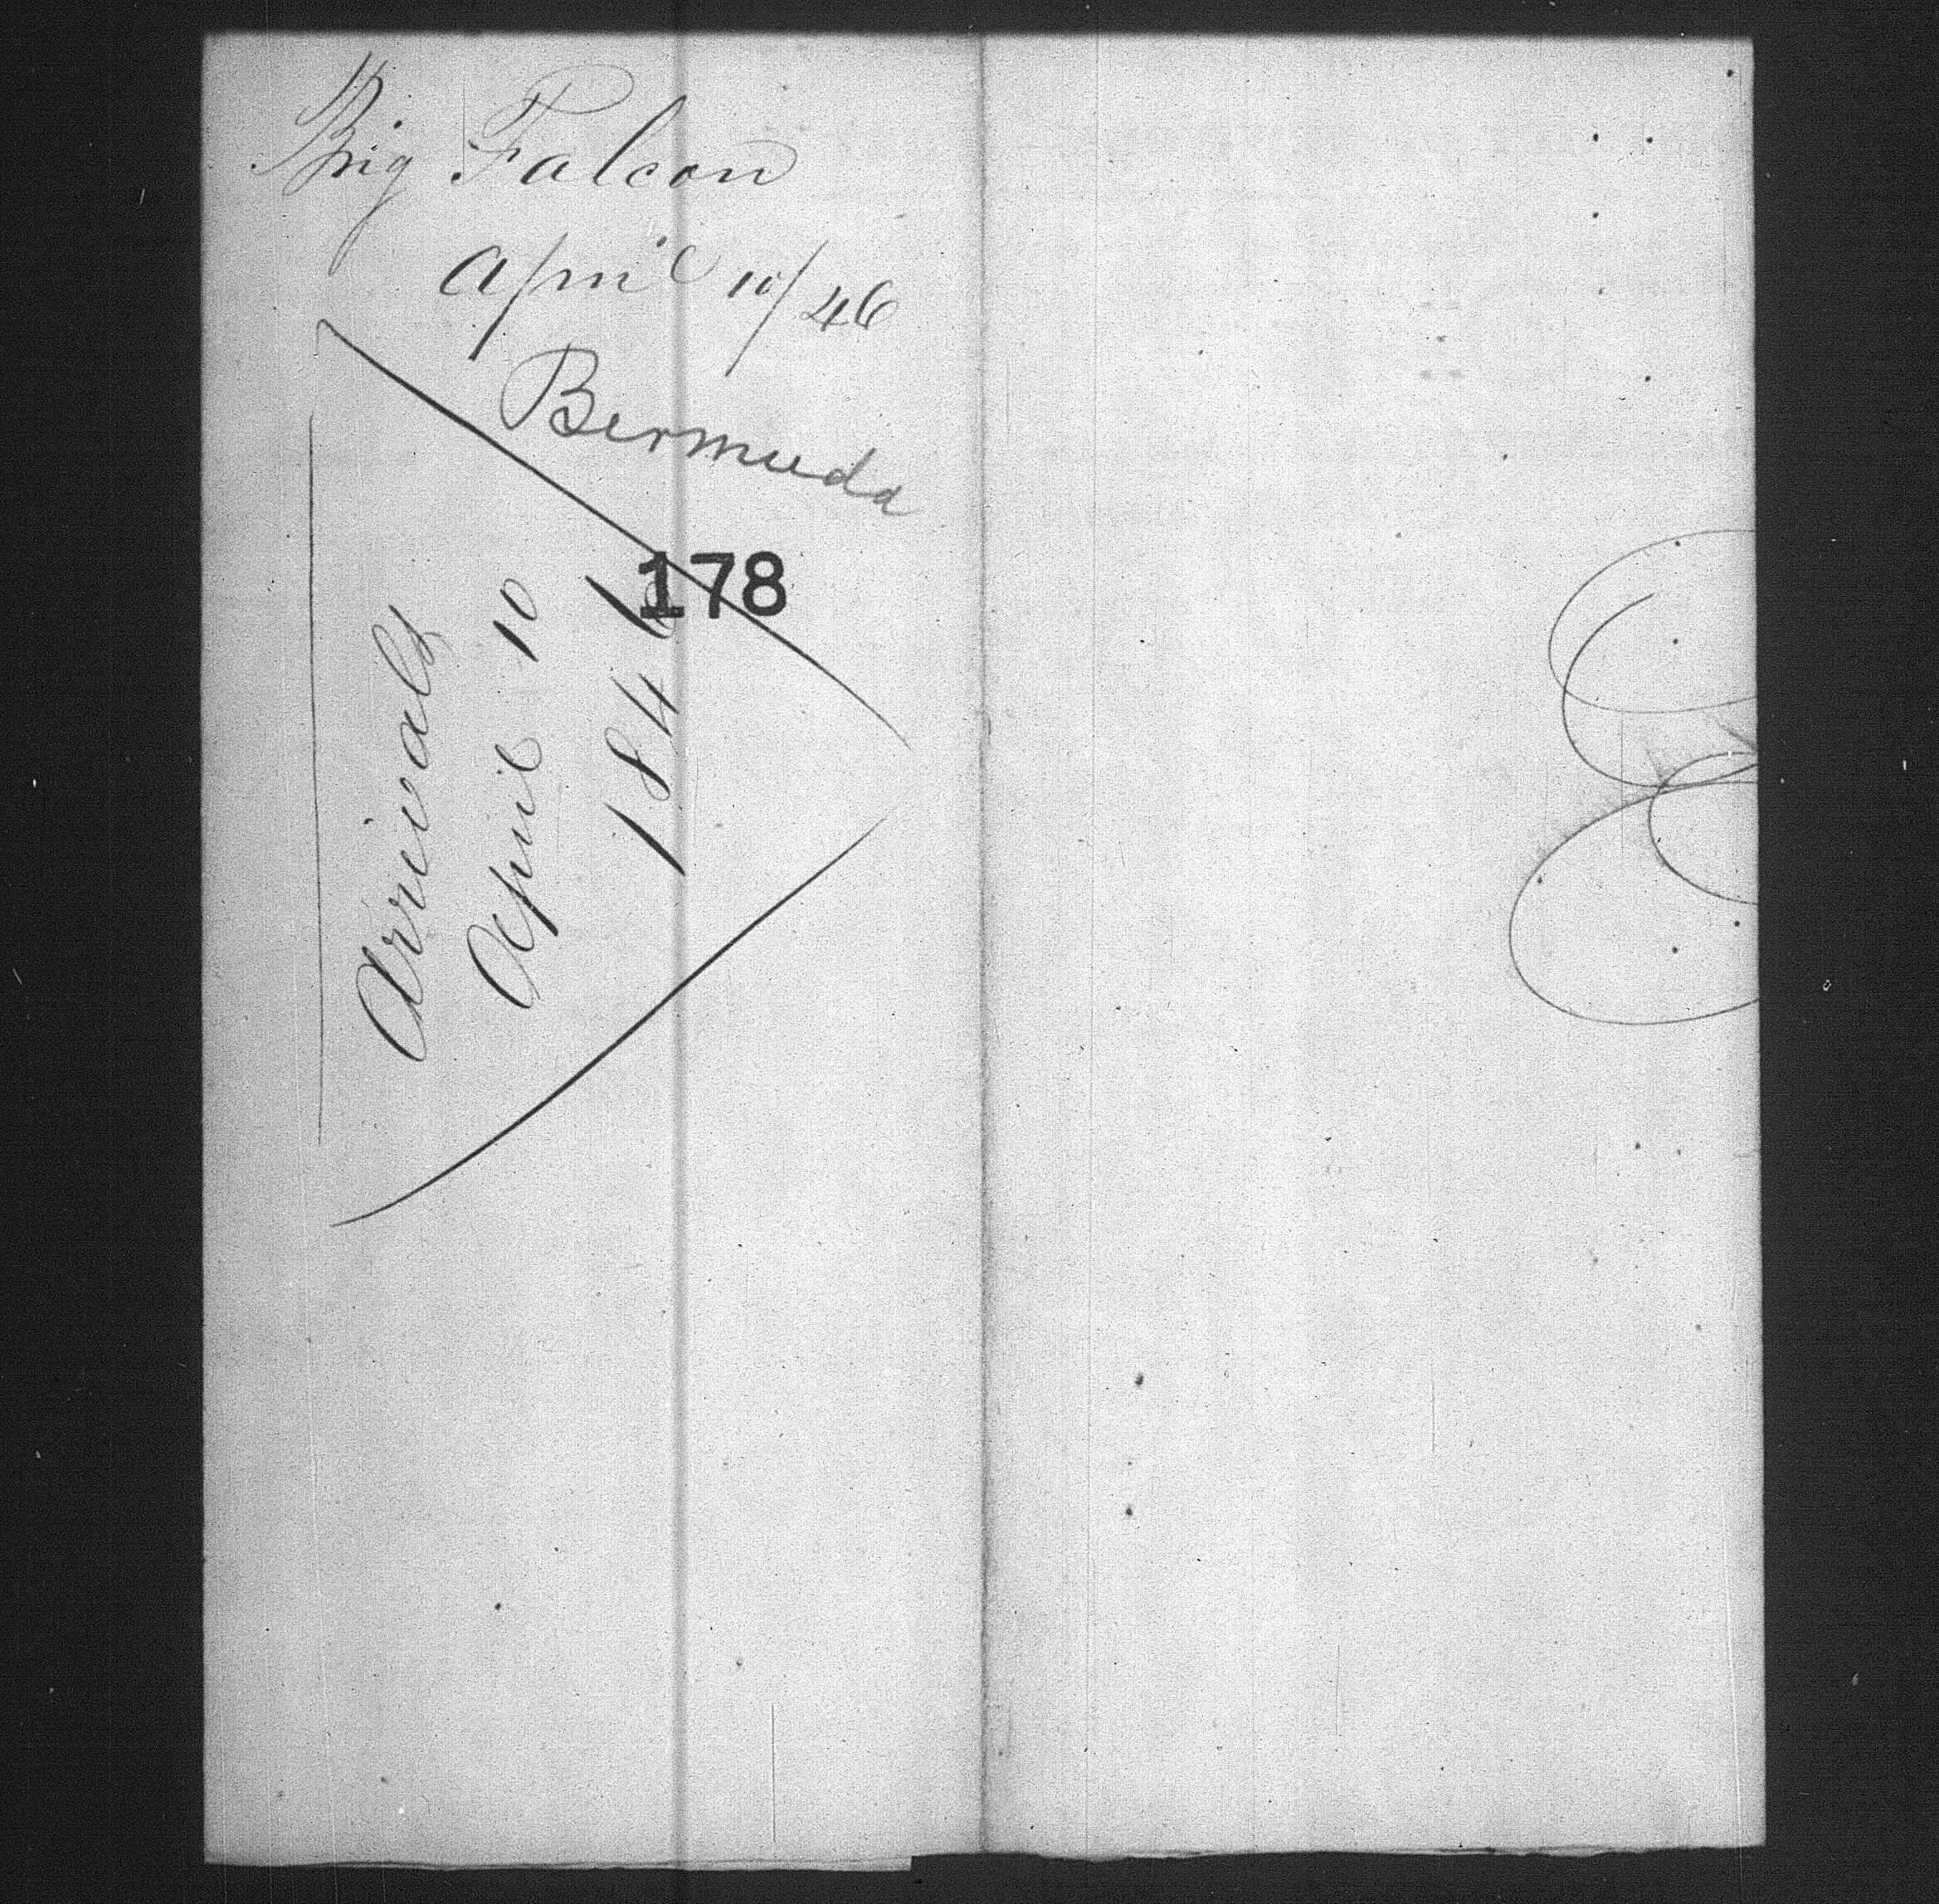 Brig Falcon
April 10/46
Bermuda
178
Arrivals
April 10
1846